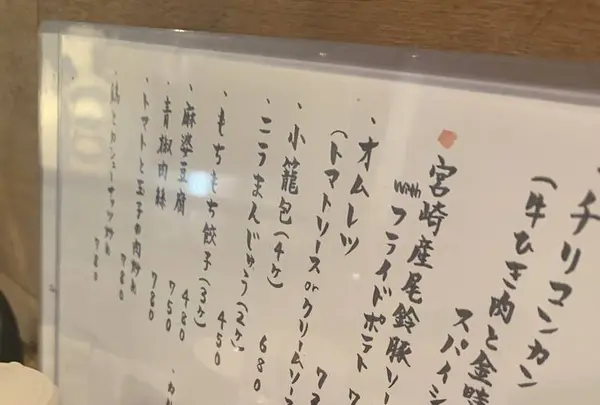 チリコンカン
(牛ひき肉と金時
スパイシ
宮崎産尾鈴豚ソー
withフライドポテト 7
・オムレツ
(トマトソースorクリームソース
7
・小籠包(4ケ)
680
・ニラまんじゅう(2ケ)
450
・もちもち餃子(3ケ)
480
・麻婆豆腐 750
・青椒肉絲 780
・トマトと玉子の肉炒め 780
・鶏とカシューナッツ炒め 780